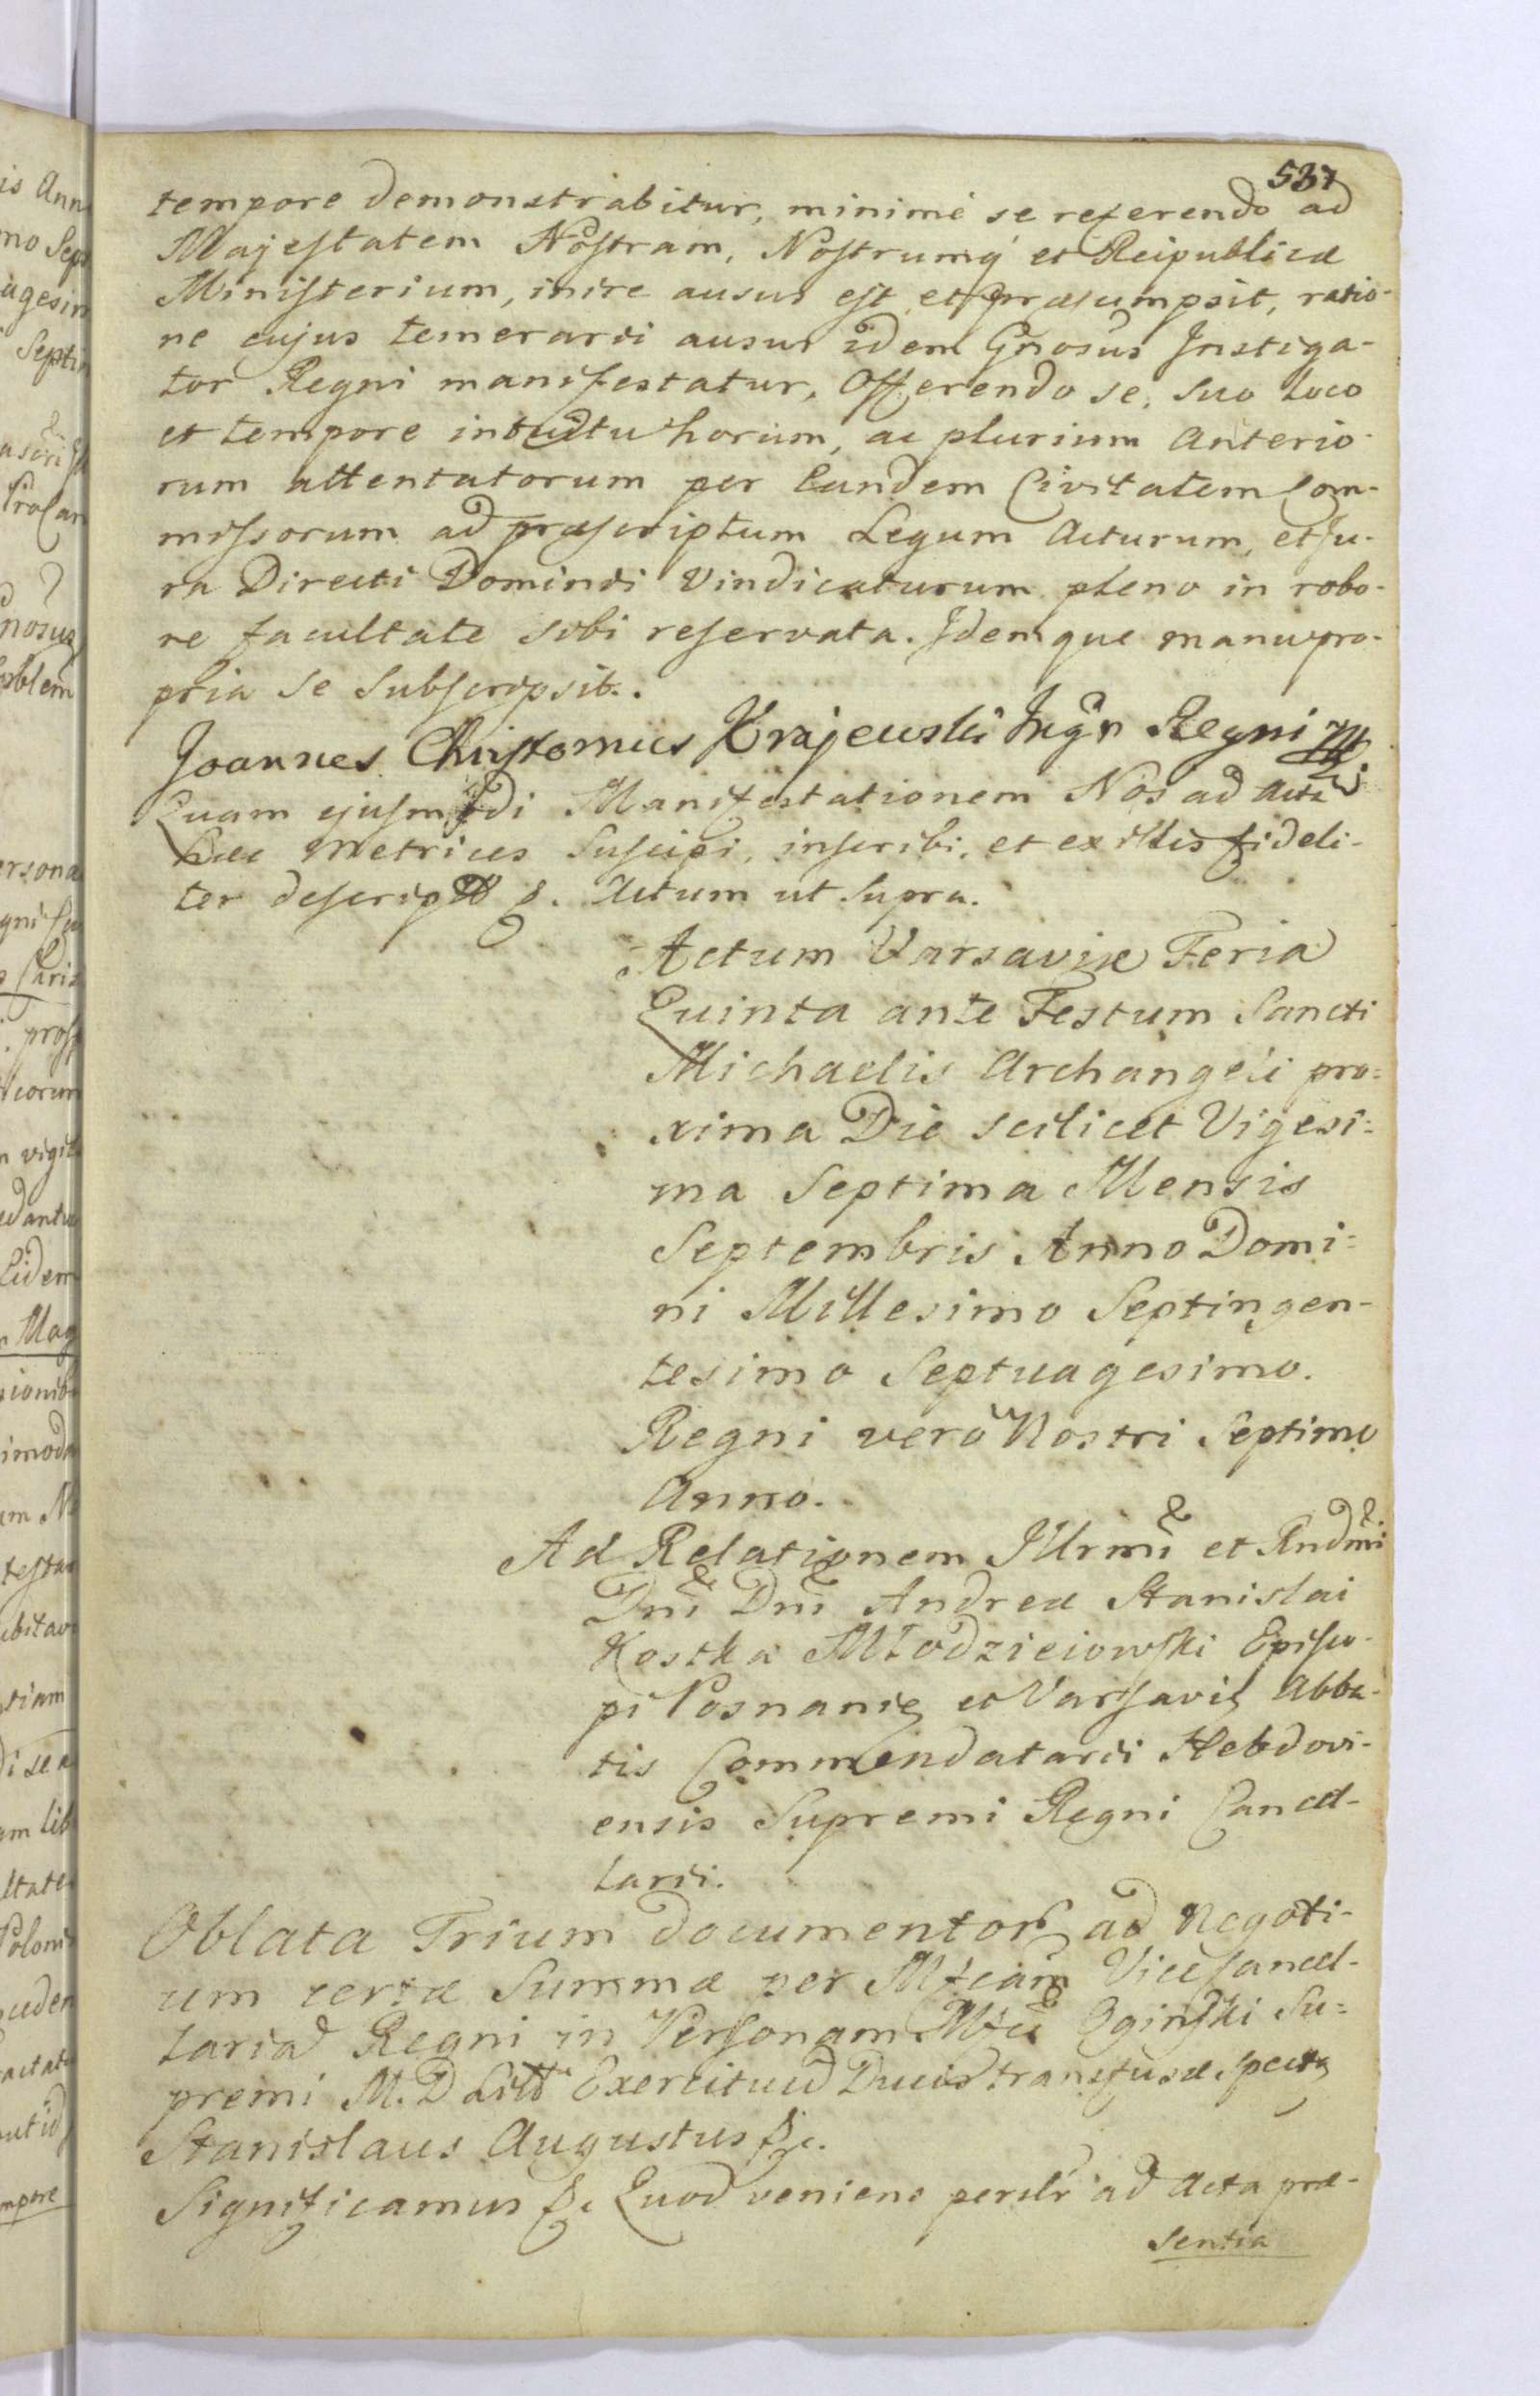 537
tempore demonstrabitur, minimè se referendo ad
Majestatem Nostram, Nostrumq́ et Reipublicæ
Ministerium, inire ausus est, et præsumpsit, ratio-
ne cujus temerarii ausus idem Gnosus Instiga-
tor Regni manifestatur, Offerendo se, suo loco
et tempore intuitu horum, ac plurium anterio-
rum attentatorum per Eandem Civitatem Com-
missorum ad præscriptum Legum Acturum, et Ju-
ra Directi Dominii Vindicaturum pleno in robo-
re facultate sibi reservata. Idemque manu pro-
pria se Subscripsit.
Joannes Chrisostomus Krajewski Ing̃r Regni mp
Quam ejusmodi Manifestationem Nos ad Acta
hæc Metrices Suscipi, inscribi, et ex illis fideli-
ter describi. Actum ut Supra.
Actum Varsaviæ Feria
Quinta ante Festum Sancti
Michaelis Archangeli pro-
xima Die scilicet Vigesi-
ma Septima Mensis
Septembris Anno Domi-
ni Millesimo Septingen-
tesimo Septuagesimo.
Regni verò Nostri Septimo
Anno.
Ad Relationem Illrmi et Rndmi
Dni Dni Andreæ Stanislai
Kostka Młodzieiowski Episco-
pi Posnanię et Varsavię Abba-
tis Commendatarii Hebdovi-
ensis Supremi Regni Cancel-
larii.
Oblata Trium documentor ad Negoti-
um certæ Summæ per Mfcam ViceCancel-
lariad Regni in Personam Mfci Oginski Su-
premi M. D. Litt Exercituu Ducis transfusæ spectt
Stanislaus Augustus &c.
Significamus &c Quod veniens perslr ad Acta præ-
sentia